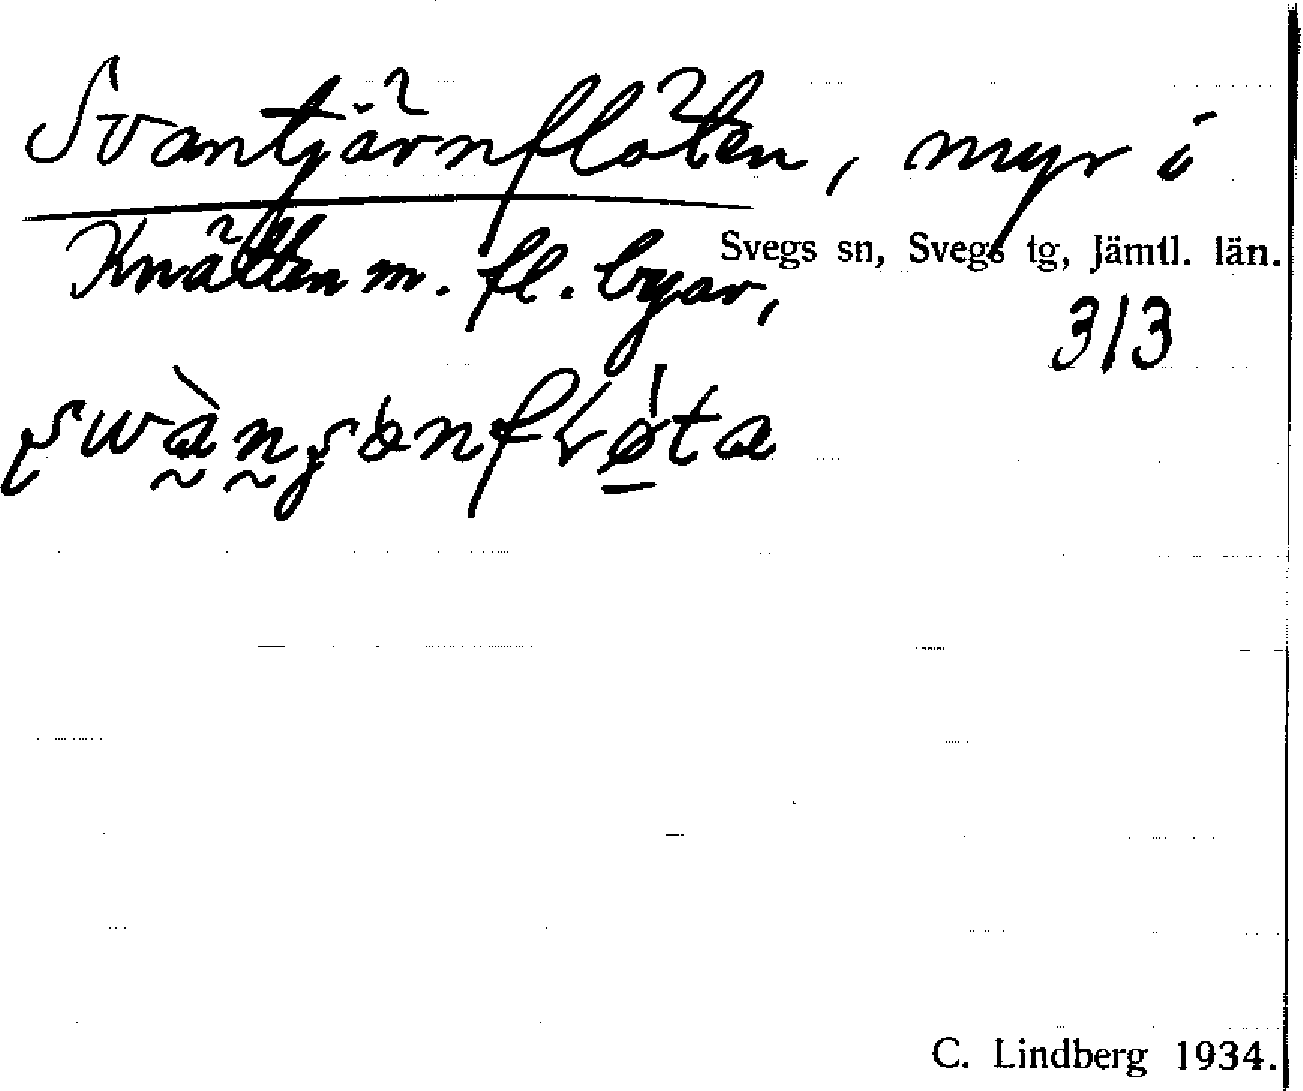 Svantjärnflöten, myr i
Svegs sn, Svegs tg, Jämtl. län.
Knätten m. fl. byar,
313
C. Lindberg 1934.